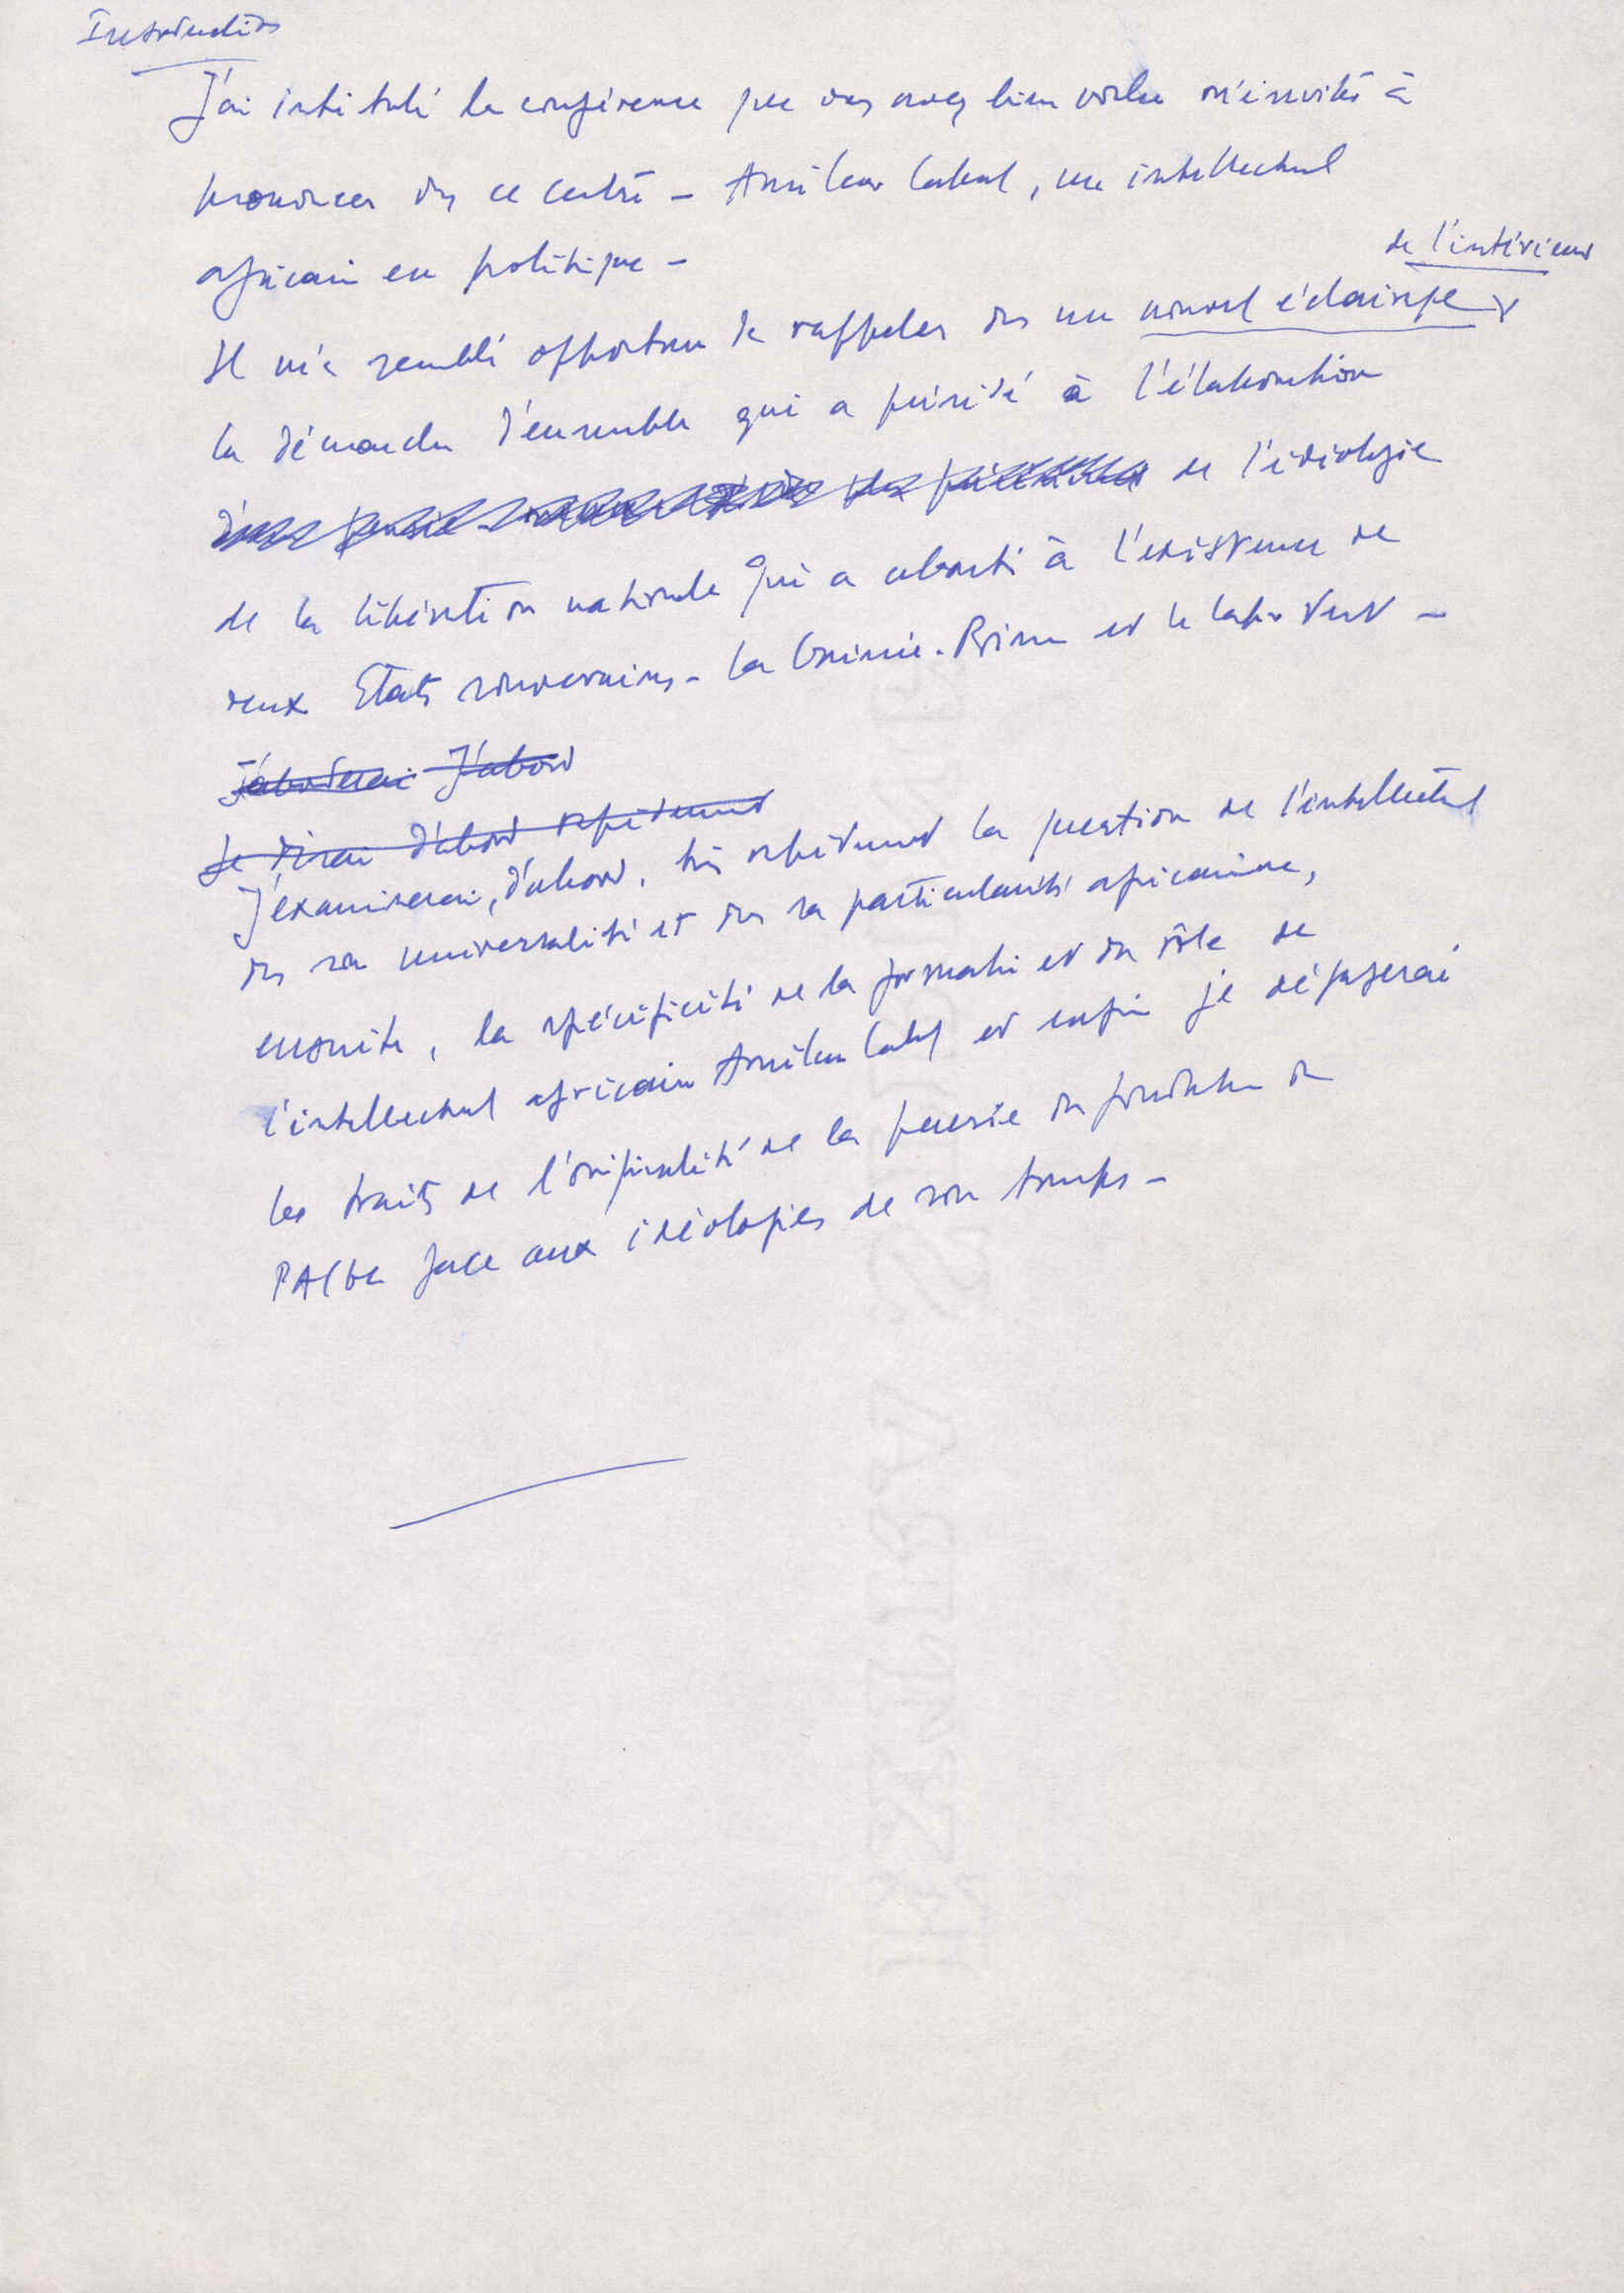 Introduction
J'ai intitulé la conférence que vous avez bien voulu m'inviter à
prononcer ds ce centre - Amilcar Cabral, un intellectuel
africain en politique -
de l'intérieur
Il m'a semblé opportun de rappeler ds un nouvel éclairage
la démarche d'ensemble qui a présidé à l'élaboration
de l'idéologie
de la libération nationale qui a abouti à l'existence de
deux Etats souverains - la Guinée-Bissau et le Cap-Vert -
J'aborderai d'abord
Je dirai d'abord rapidement
J'examinerai, d'abord, très rapidement la question de l'intellectuel
ds son universalité et ds sa particularité africaine,
ensuite, la spécificité de la formation et du rôle de
l'intellectuel africain Amilcar Cabral et enfin je dégagerai
les traits de l'originalité de la pensée du fondateur du
PAIGC face aux idéologies de son temps -